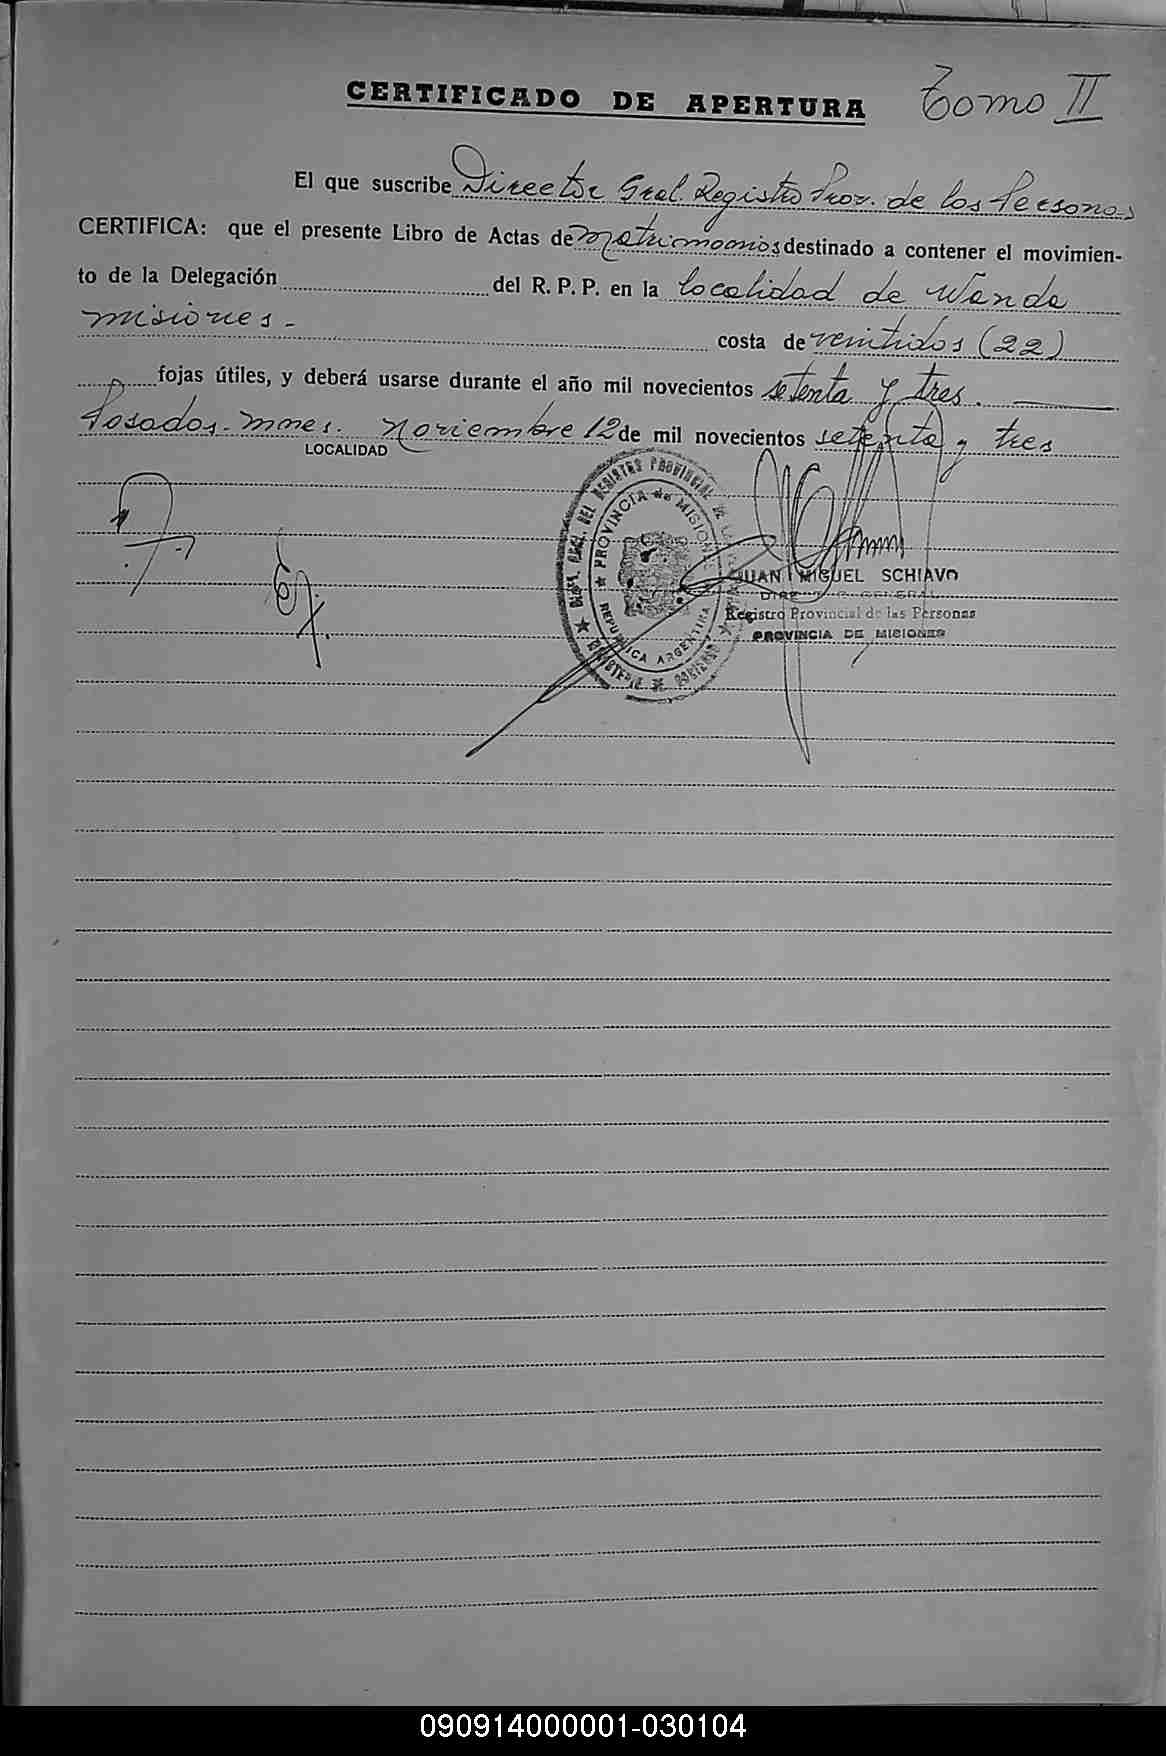 CERTIFICADO DE APERTURA Tomo II
El que suscribe Director Gral. Registro Prov. de los Personas
CERTIFICA: que el presente Libro de Actas de Matrimonios destinado a contener el movimien-
to de la Delegación del R. P. P. en la localidad de Wanda
misiones.-
costa de veintidos (22)
fojas útiles, y deberá usarse durante el año mil novecientos setenta y tres.
Posadas. Mnes. Noviembre 12 de mil novecientos setenta y tres
LOCALIDAD
DEL REGISTRO PROVINCIAL DE
PROVINCIA de MISIONES
REPUBLICA ARGENTINA
MINISTERIO GOBIERNO
JUAN MIGUEL SCHIAVO
DIRECTOR GENERAL
Registro Provincial de las Personas
PROVINCIA DE MISIONES
090914000001-030104